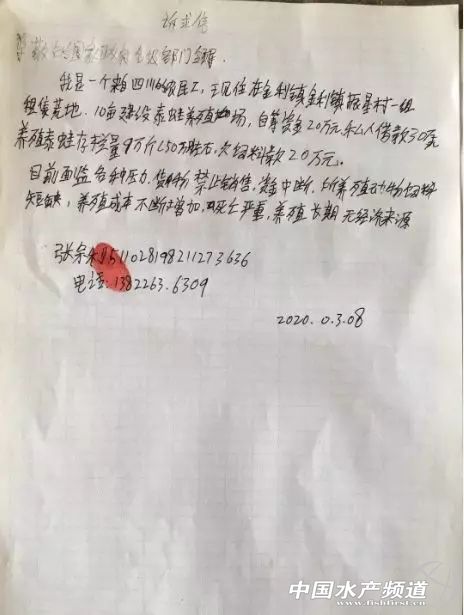 诉求信
我是一个来自四川的农民工,现住在金利镇金利镇振星村一组
租集荒地.10亩建设泰蛙养殖场,自筹资金20万元.私人借款30万
养殖泰蛙存栏量9万斤(50万只左右.欠饲料款20万元。
目前面监各种压力.货物禁止销售.资金中断.所养殖动物饲料
短缺,养殖成本不断增加.死亡严重.养殖长期无经济来源
电话:1382263.6309
2020.0.3.08
中国水产频道
www.fishfirst.cn